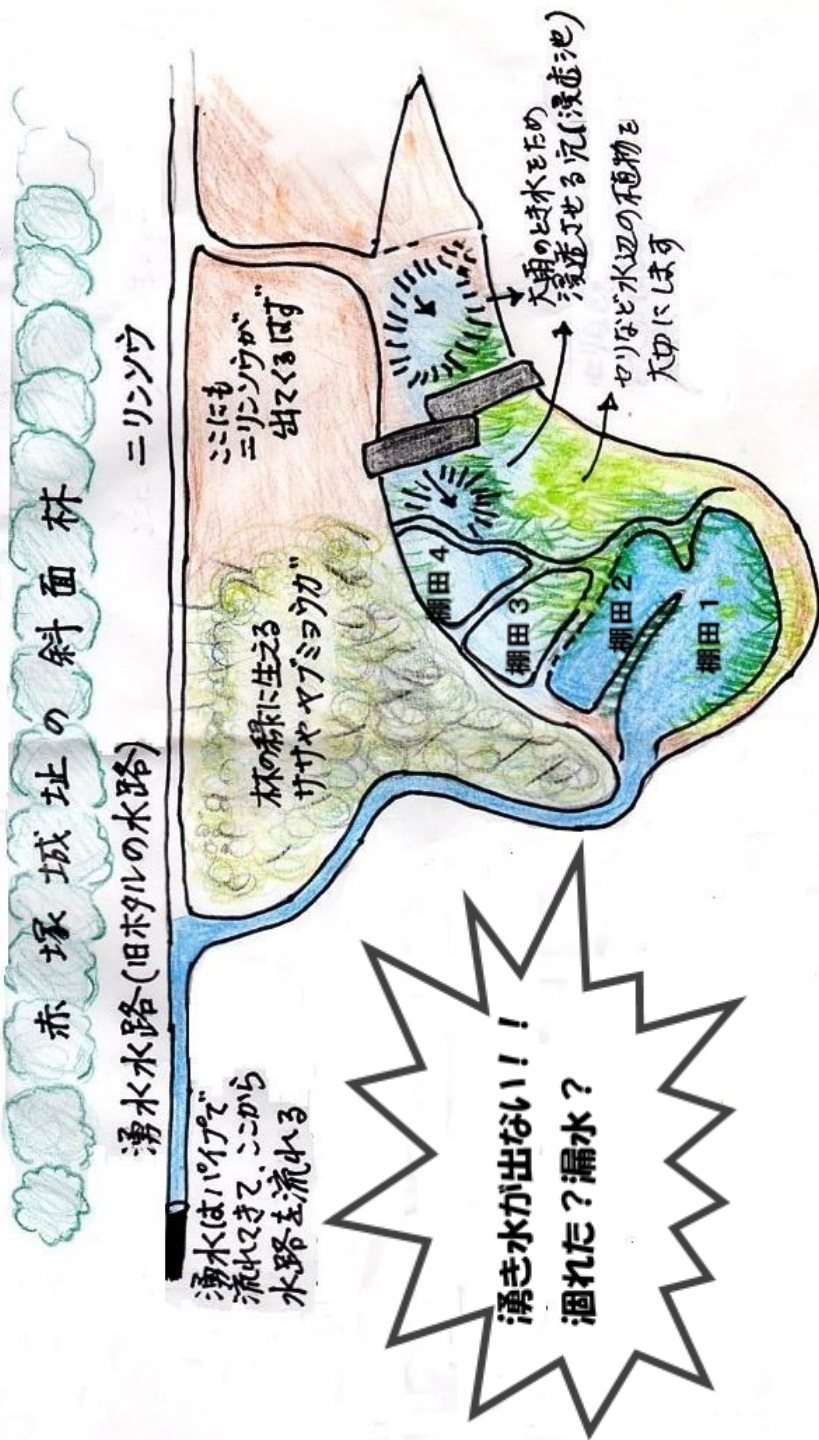 赤塚城址の斜面林
湧水水路(旧ホタルの水路)
ニリンソウ
湧水はパイプで
流れてきて、ここから
水路を流れる
林の縁に生える
ササやヤブミョウガ
ここにも
ニリンソウが
出てくるはず
棚田4
棚田3
棚田2
棚田1
大雨のとき水をため
浸透させる穴(浸透池)
セリなど水辺の植物を
大切にします
湧き水が出ない!!
涸れた?漏水?